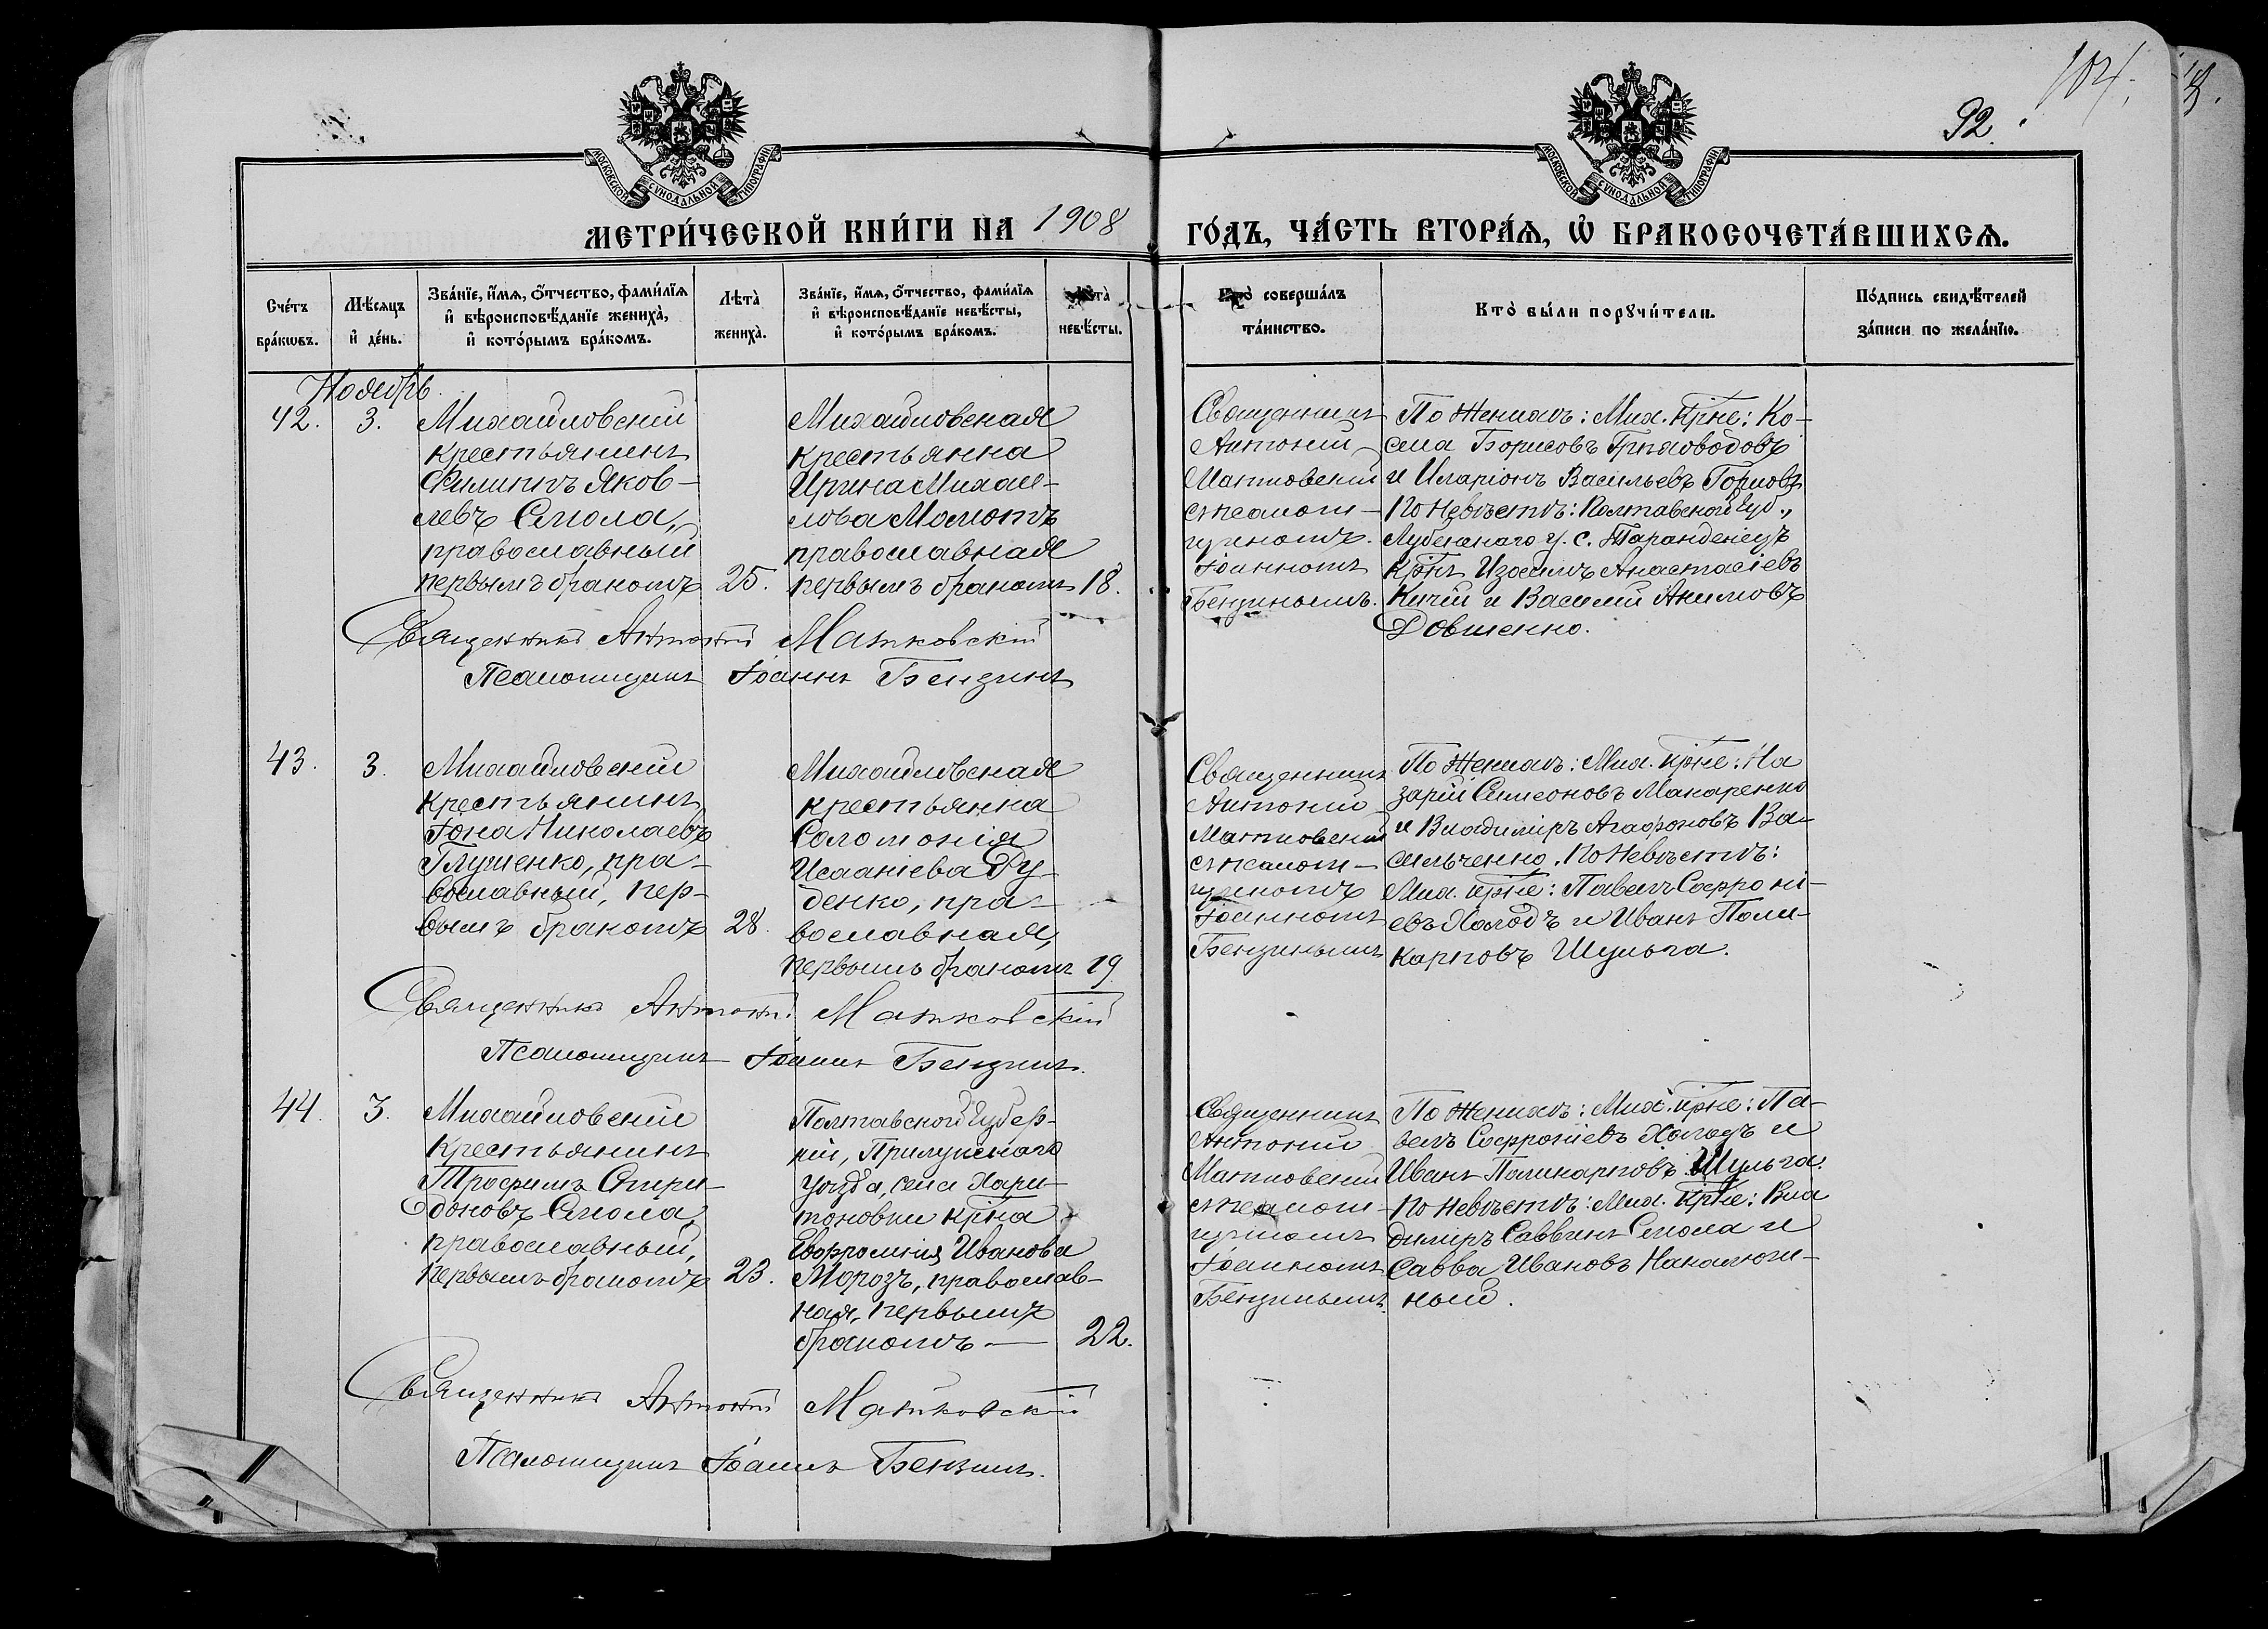 104.
92.
МОСКОВСКОЙ СУНОДАЛЬНОЙ ТИПОГРАФІИ
МОСКОВСКОЙ СУНОДАЛЬНОЙ ТИПОГРАФІИ
МЕТРИ́ЧЕСКОЙ КНИ́ГИ НА 1908 ГО́ДЪ, ЧА́СТЬ ВТОРА́Ѧ, Ѡ҆ БРАКОСОЧЕТА́ВШИХСѦ.
Сче́тъ бра́кѡвъ.
Мѣ́сѧцъ и҆ де́нь.
Зва́нїе, и҆́мѧ, ѻ҆́тчество, фами́лїѧ
и҆ вѣроисповѣ́данїе жениха̀,
и҆ кото́рымъ бра́комъ.
Лѣта̀ жениха̀.
Зва́нїе, и҆́мѧ, ѻ҆́тчество, фами́лїѧ
и҆ вѣроисповѣ́данїе невѣ́сты,
и҆ кото́рымъ бра́комъ.
Лѣта̀ невѣ́сты.
Кто̀ соверша́лъ
та́инство.
Кто̀ бы́ли порꙋчи́тели.
По́дпись свидѣ́телей
за́писи по жела́нїю.
Ноябрь.
42. 3.
Михайловскій
крестьянинъ
Филиппъ Яков-
левъ Смола,
православный
первымъ бракомъ 25.
Михайловская
крестьянка
Ирина Михаи-
лова Мамонтъ
православная
первымъ бракомъ 18.
Священникъ
Антоній
Матковскій
съ псалом-
щикомъ
Іоанномъ
Бензинымъ.
По Женихѣ: Мих. крне: Ко-
сма Борисовъ
и Иларіонъ Васильевъ
По Невѣстѣ: Полтавской губ.,
Лубенскаго у. с. Тарандинецъ
крнъ Изосимъ Анастасіевъ
и Василій Акимовъ
Довженко.
Священникъ Антоній Матковскій
Псаломщикъ Іоаннъ Бензинъ
43. 3.
Михайловскій
крестьянинъ
Іона Николаевъ
Глущенко, пра-
вославный, пер-
вымъ бракомъ 28.
Михайловская
крестьянка
Соломонія
Исааніева Ру-
денко, пра-
вославная,
первымъ бракомъ 19
Священникъ
Антоній
Матковскій
съ псалом-
щикомъ
Іоанномъ
Бензинымъ
По Женихѣ: Мих. крне: На
зарій Симеоновъ Макаренко
и Владиміръ Агафоновъ Ва-
сильченко. По Невѣстѣ:
Мих. крне: Павелъ Софроні-
евъ Холодъ и Иванъ Поли-
карповъ Шульга.
Священникъ Антоній Матковскій
Псаломщикъ Іоаннъ Бензинъ.
44. 3.
Михайловскій
Крестьянинъ
Трофимъ Спири-
доновъ Смола,
православный,
первымъ бракомъ 23.
Полтавской Губер-
ніи, Прилукскаго
уѣзда, села Хари-
тоновки крнка
Евфросинія Иванова
Морозъ, православ-
ная, первымъ
бракомъ — 22.
Священникъ
Антоній
Матковскій
съ псалом-
щикомъ
Іоанномъ
Бензинымъ.
По Женихѣ: Мих. крне: Па-
велъ Софроніевъ Холодъ и
Иванъ Поликарповъ Шульга.
По Невѣстѣ: Мих. крне: Вла
диміръ Саввинъ Смола и
Савва Ивановъ Накалюж-
ный.
Священникъ Антоній Матковскій
Псаломщикъ Іоаннъ Бензинъ.